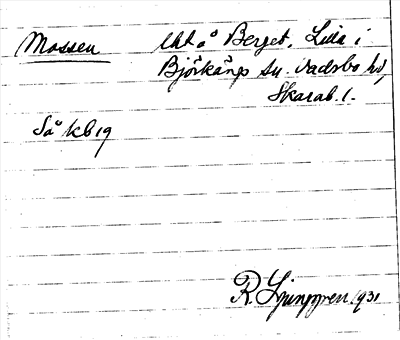 Mossen lht å Berget, Lilla i
Björkängs sn. Vadsbo hd,
Skarab. l.
Så kb 19
R. Ljunggren 1931